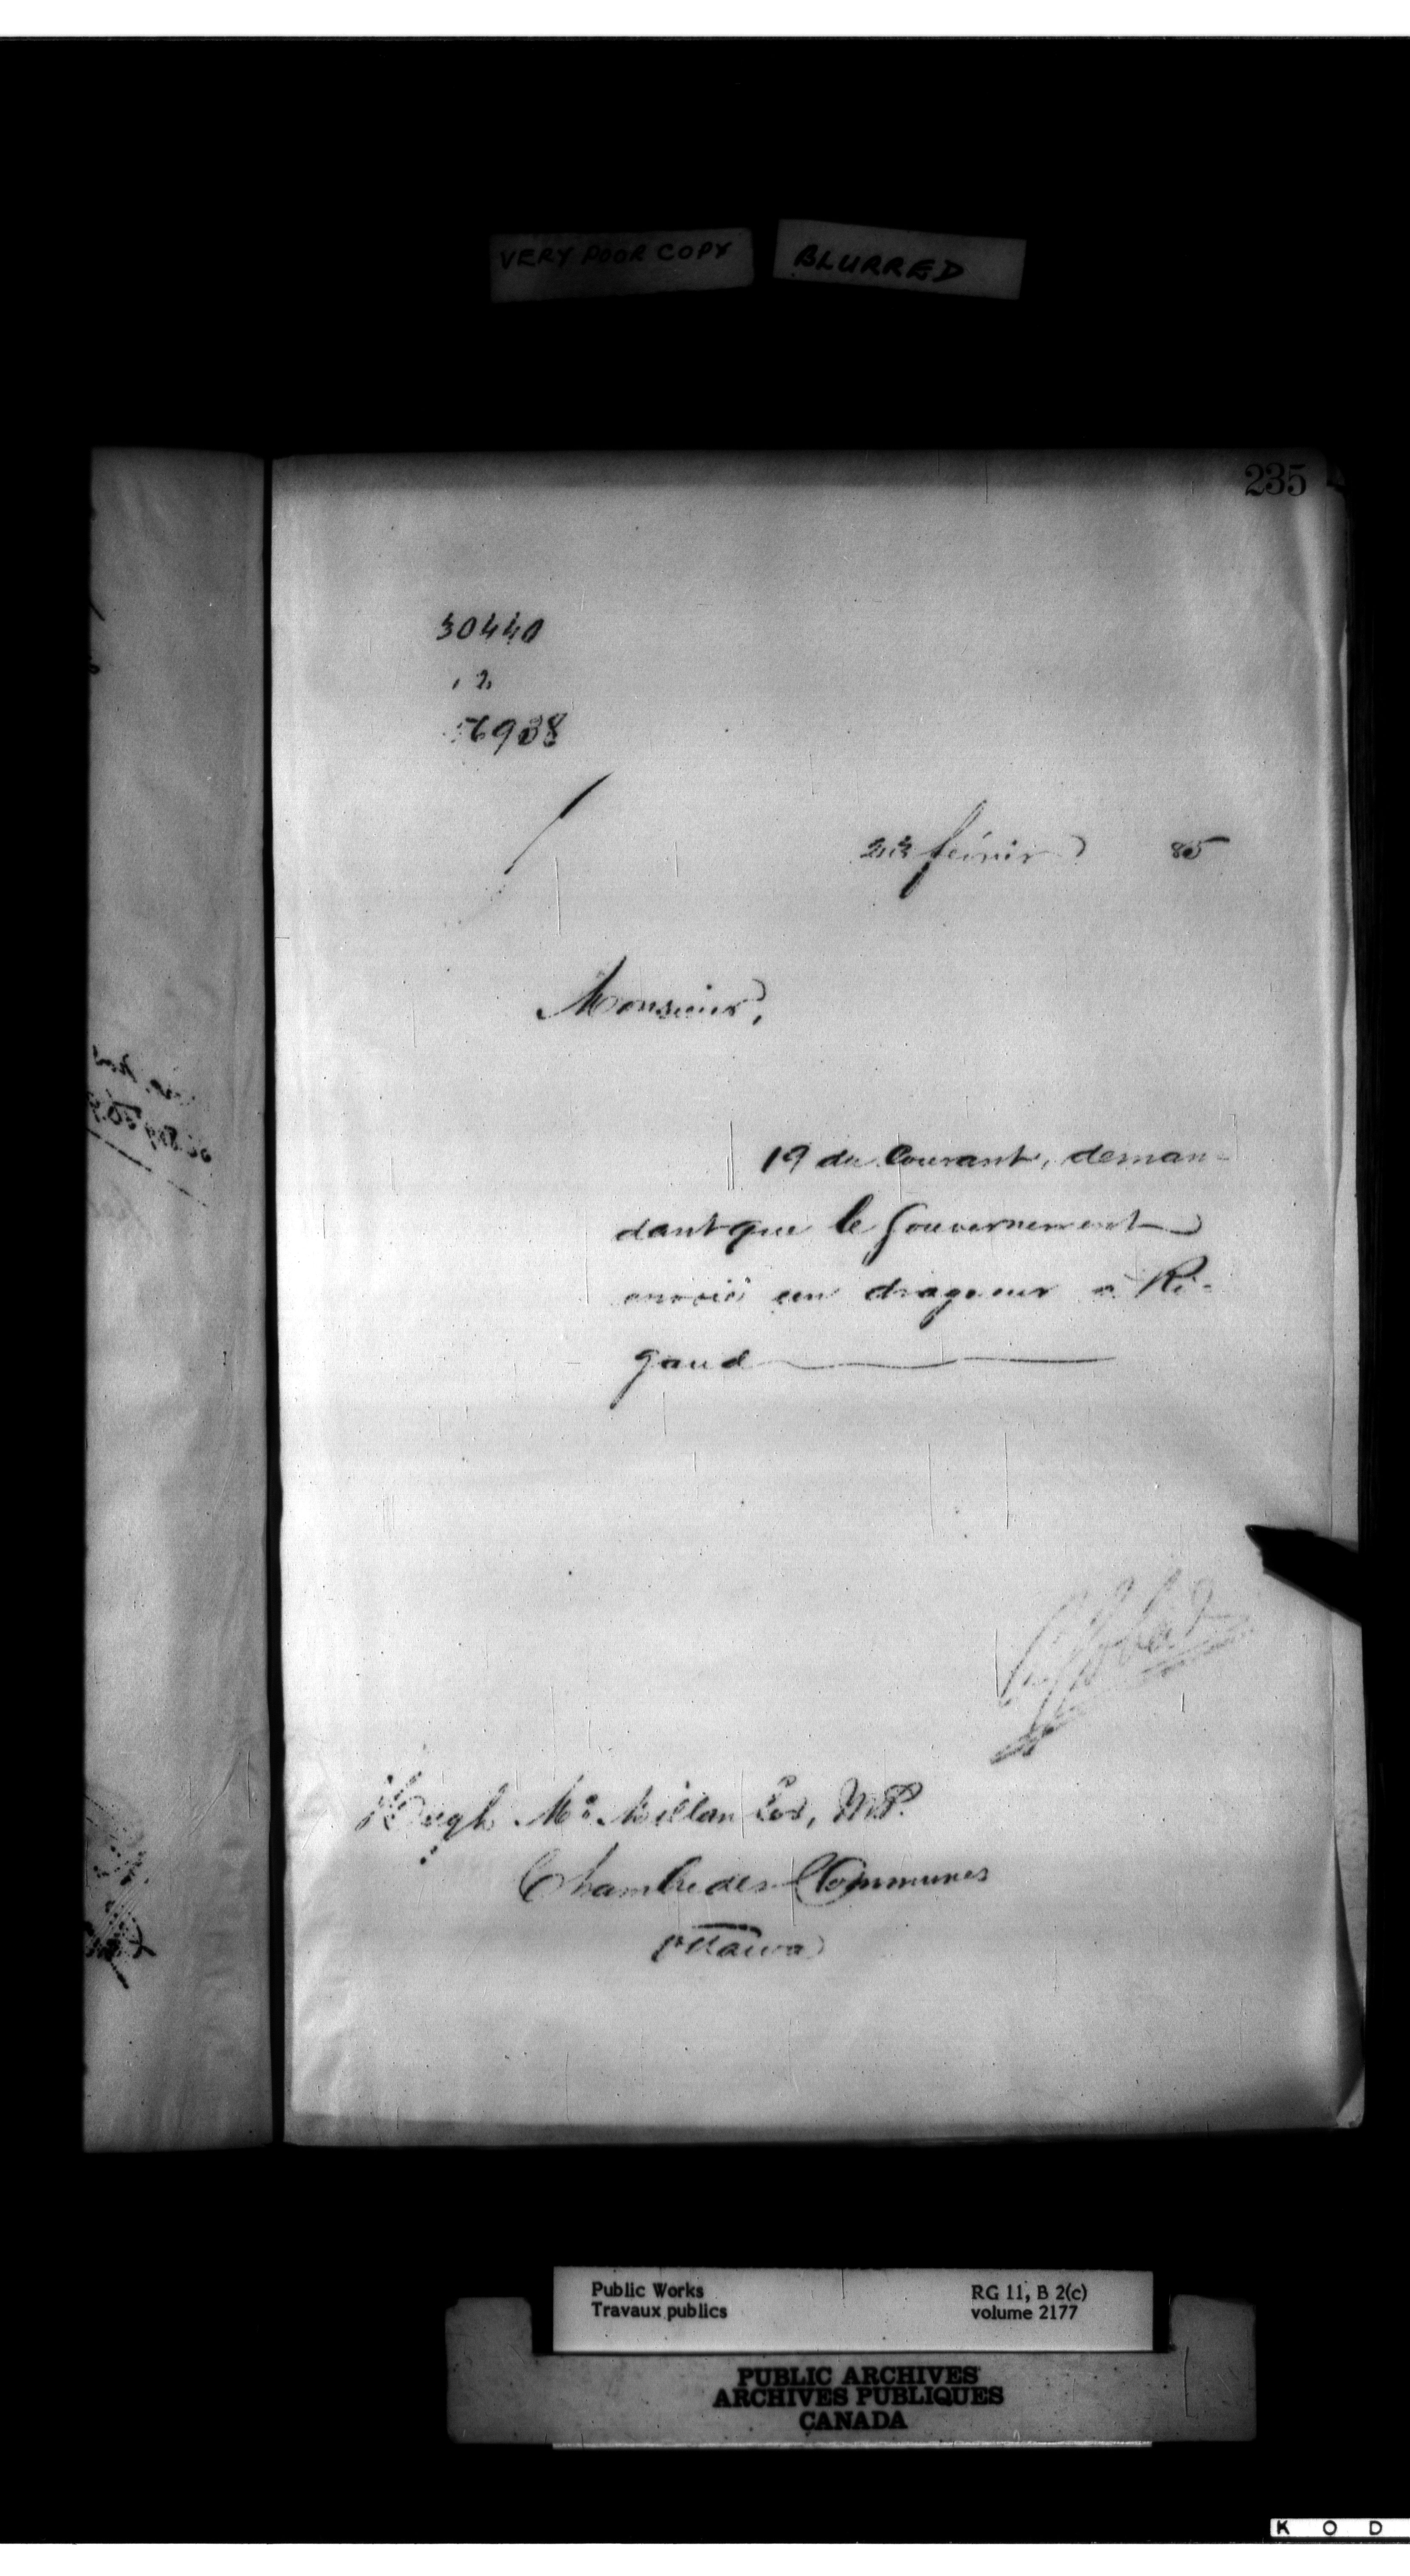 VERY POOR COPY BLURRED
235
30440
56938
23 février 85
Monsieur,
19 du Courant, deman-
dant que le Gouvernement
envoie un dragueur à Ri-
gaud
Hugh Mc Millan Ecr, M.P.
Chambre des Communes
Ottawa
Public Works RG 11, B 2(c)
Travaux publics volume 2177
PUBLIC ARCHIVES
ARCHIVES PUBLIQUES
CANADA
K O D